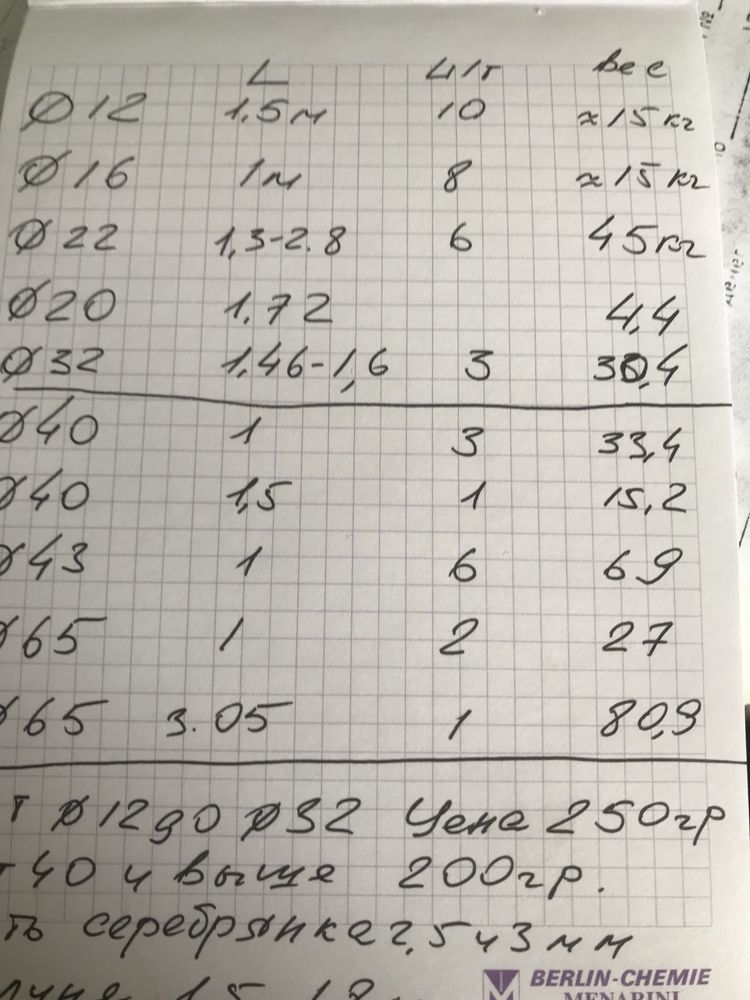 L шт вес
Ø12 1.5м 10 ≈15кг
Ø16 1м 8 ≈15кг
Ø22 1,3-2.8 6 45кг
Ø20 1.72 4,4
Ø32 1,46-1,6 3 30,4
Ø40 1 3 33,4
Ø40 1,5 1 15,2
Ø43 1 6 69
Ø65 1 2 27
Ø65 3.05 1 80,9
т Ø12 до Ø32 Цена 250гр
т 40 и выше 200гр.
ть серебрянка 2,5 и 3 мм
BERLIN-CHEMIE
MENARINI